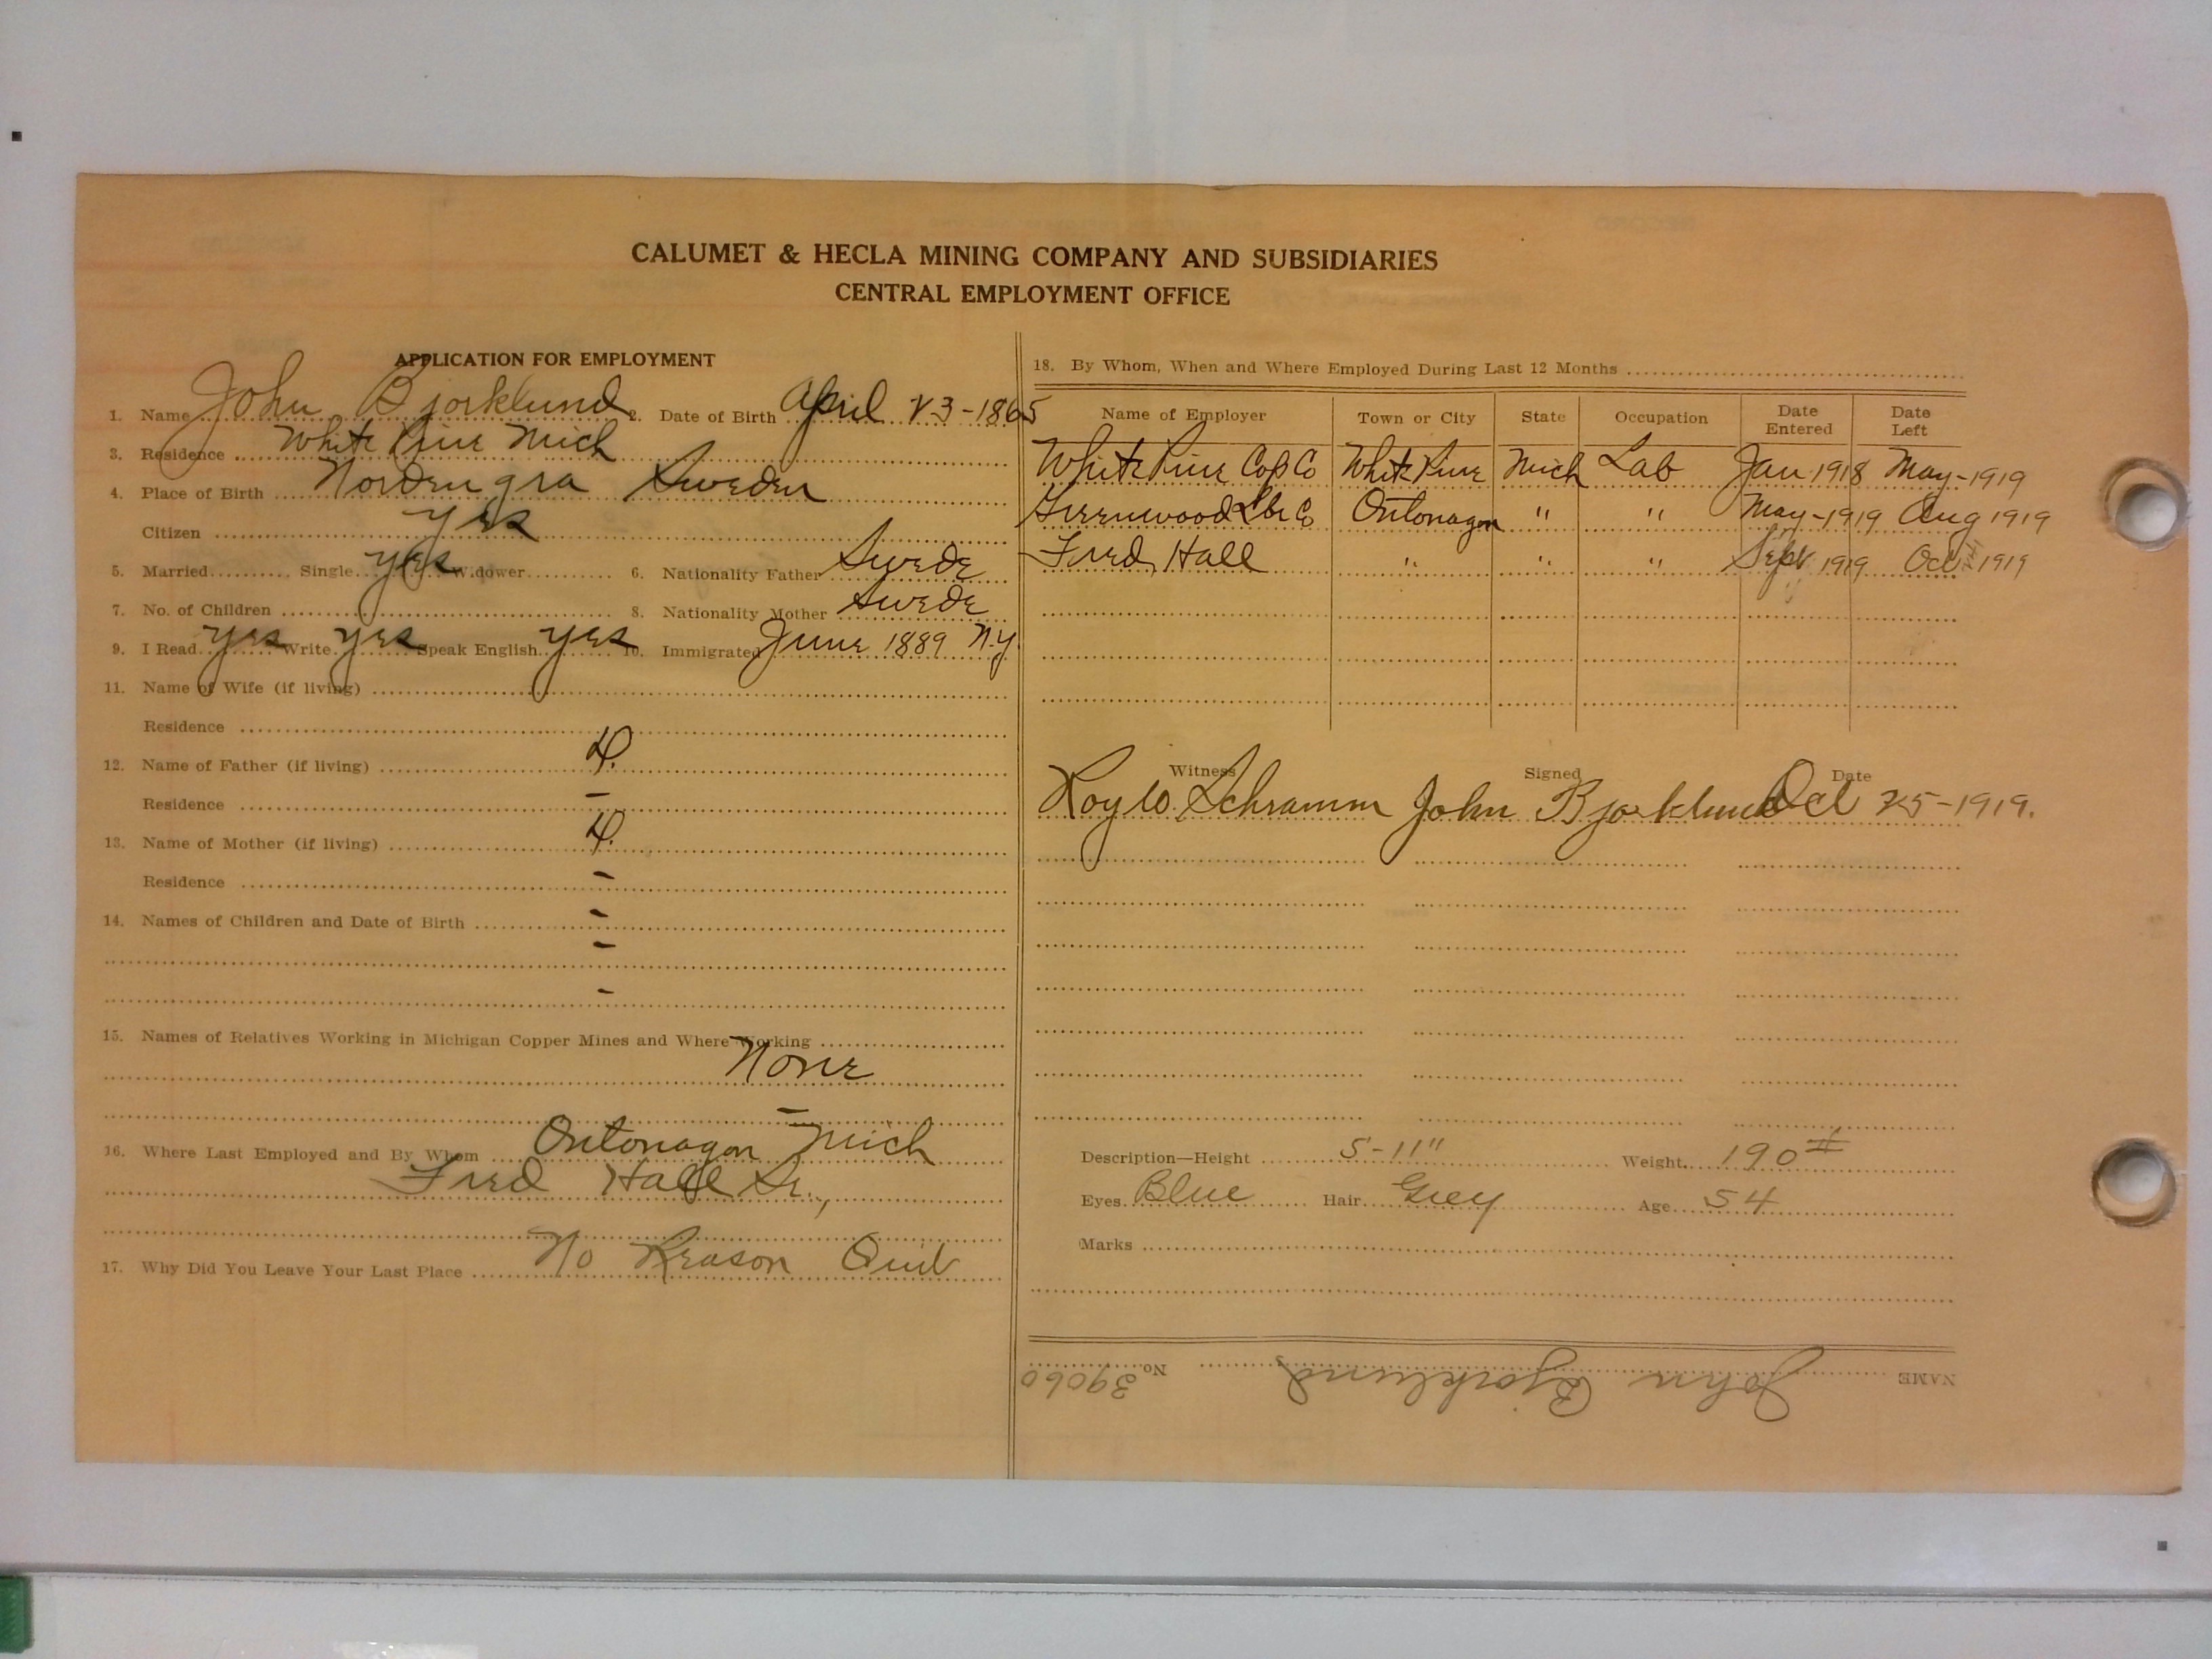 CALUMET & HECLA MINING COMPANY AND SUBSIDIARIES
CENTRAL EMPLOYMENT OFFICE
APPLICATION FOR EMPLOYMENT
1. Name John Bjorklund 2. Date of Birth April 23-1865
3. Residence White Pine Mich
4. Place of Birth Nordengra Sweden
Citizen yes
5. Married Single yes Widower 6. Nationality Father Swede
7. No. of Children 8. Nationality Mother Swede
9. I Read yes Write yes Speak English yes 10. Immigrated June 1889 N.Y.
11. Name of Wife (if living)
Residence
12. Name of Father (if living) D.
Residence -
13. Name of Mother (if living) D.
Residence -
14. Names of Children and Date of Birth -
-
-
15. Names of Relatives Working in Michigan Copper Mines and Where Working
None
-
16. Where Last Employed and By Whom Ontonagon Mich
Fred Hall Sr.,
17. Why Did You Leave Your Last Place No Reason Quit
18. By Whom, When and Where Employed During Last 12 Months
Name of Employer Town or City State Occupation Date Entered Date Left
White Pine Cop Co White Pine Mich Lab Jan 1918 May-1919
Greenwood Lbr Co Ontonagon " " May-1919 Aug 1919
Fred Hall " " " Sept 1919 Oct 1919
Witness Signed Date
Roy W. Schramm John Bjorklund Oct 25-1919.
Description—Height 5-11" Weight 190#
Eyes Blue Hair Grey Age 54
Marks
NAME John Bjorklund No. 39060